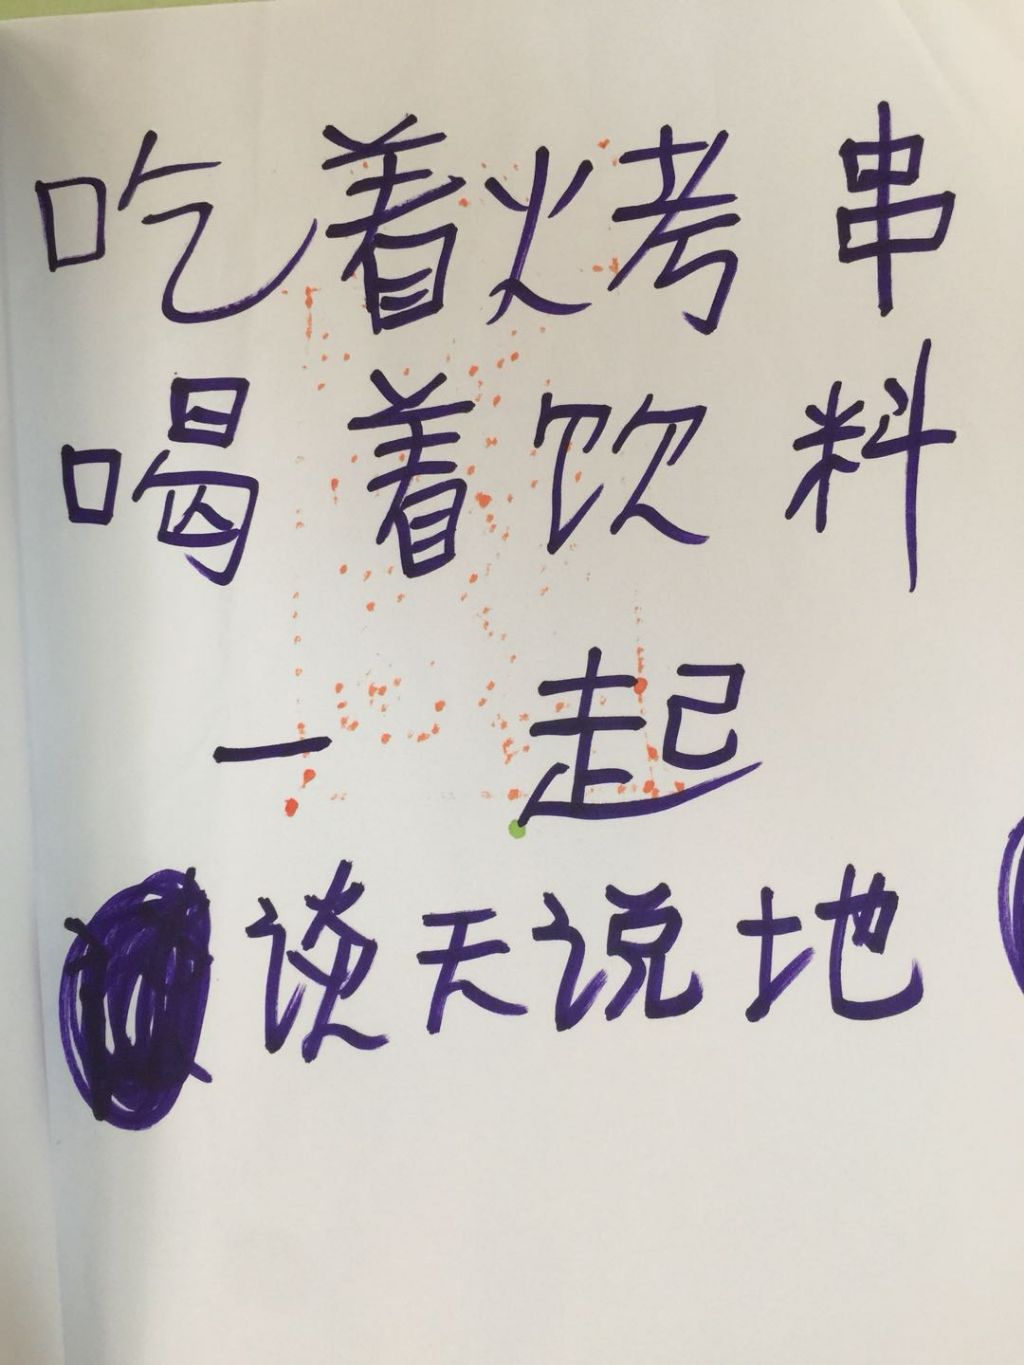 吃着烤串
喝着饮料
一起
谈天说地